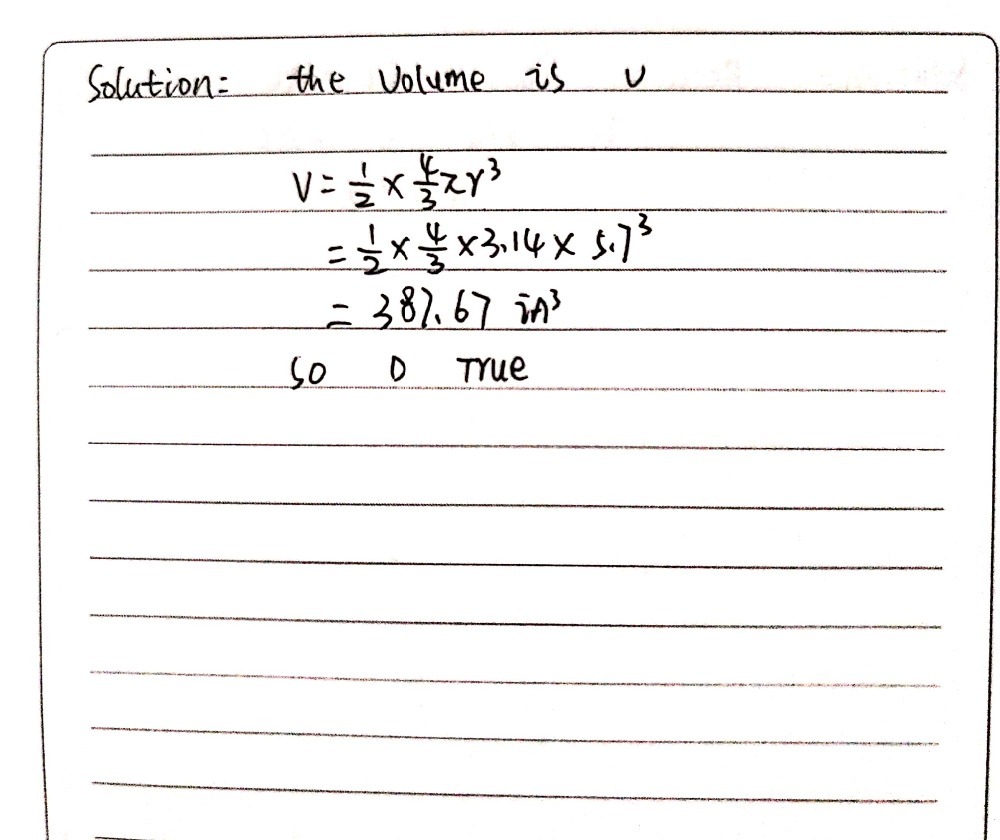 Solution: the Volume is V
V = 1/2 × 4/3 πr³
= 1/2 × 4/3 × 3.14 × 5.7³
= 387.67 in³
so D True